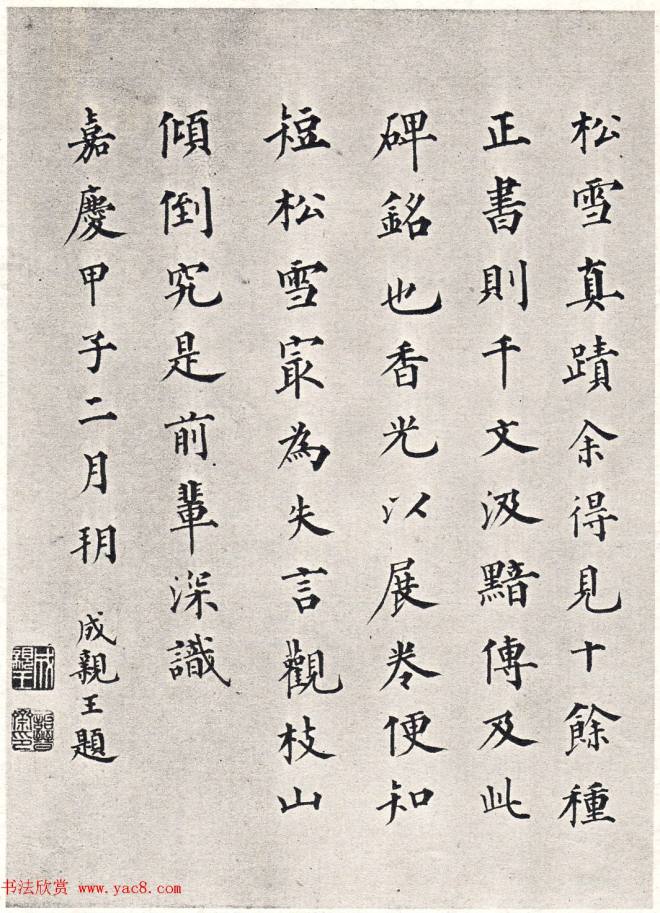 松雪真蹟余得見十餘種
正書則千文汲黯傳及此
碑銘也香光以展卷便知
短松雪㝡為失言觀枝山
傾倒究是前輩深識
嘉慶甲子二月朔 成親王題
成親王
詒晉齋印
书法欣赏 www.yac8.com